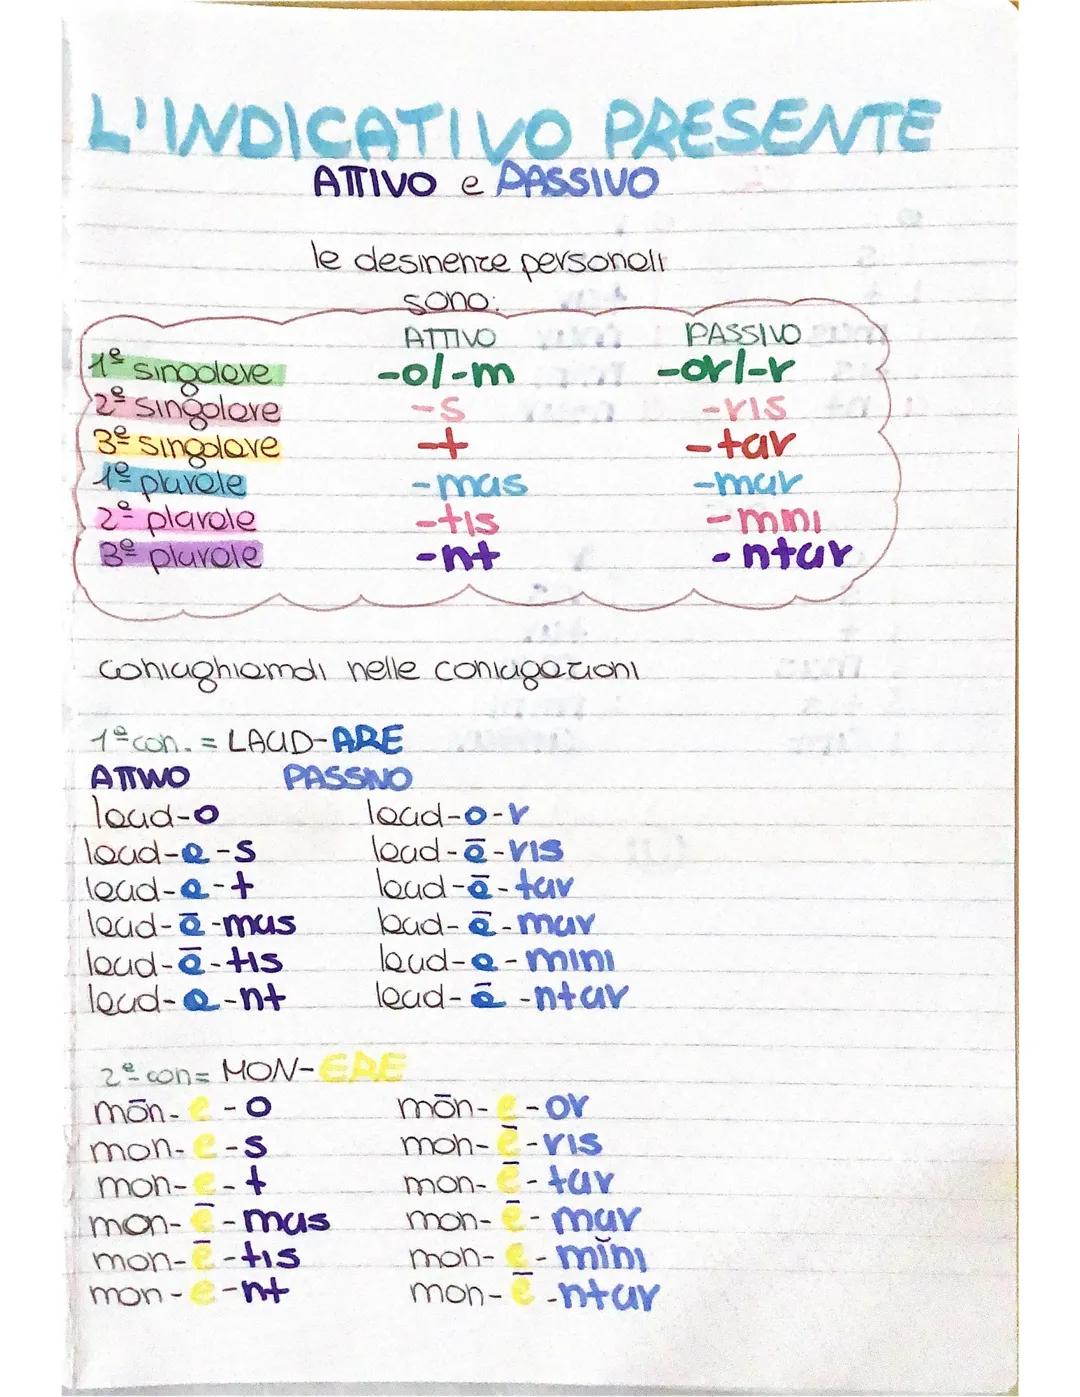 L'INDICATIVO PRESENTE
ATTIVO e PASSIVO
le desinenze personali
sono:
ATTIVO PASSIVO
1ª singolare -o/-m -or/-r
2ª singolare -s -ris
3ª singolare -t -tur
1ª plurale -mus -mur
2ª plurale -tis -mini
3ª plurale -nt -ntur
coniughiamoli nelle coniugazioni
1ª con. = LAUD-ARE
ATTIVO PASSIVO
laud-o laud-o-r
laud-a-s laud-ā-ris
laud-a-t laud-ā-tur
laud-ā-mus laud-ā-mur
laud-ā-tis laud-a-mini
laud-a-nt laud-ā-ntur
2ª con= MON-ERE
mōn-e-o mōn-e-or
mon-e-s mon-ē-ris
mon-e-t mon-ē-tur
mon-ē-mus mon-ē-mur
mon-ē-tis mon-e-mĭni
mon-e-nt mon-ē-ntur